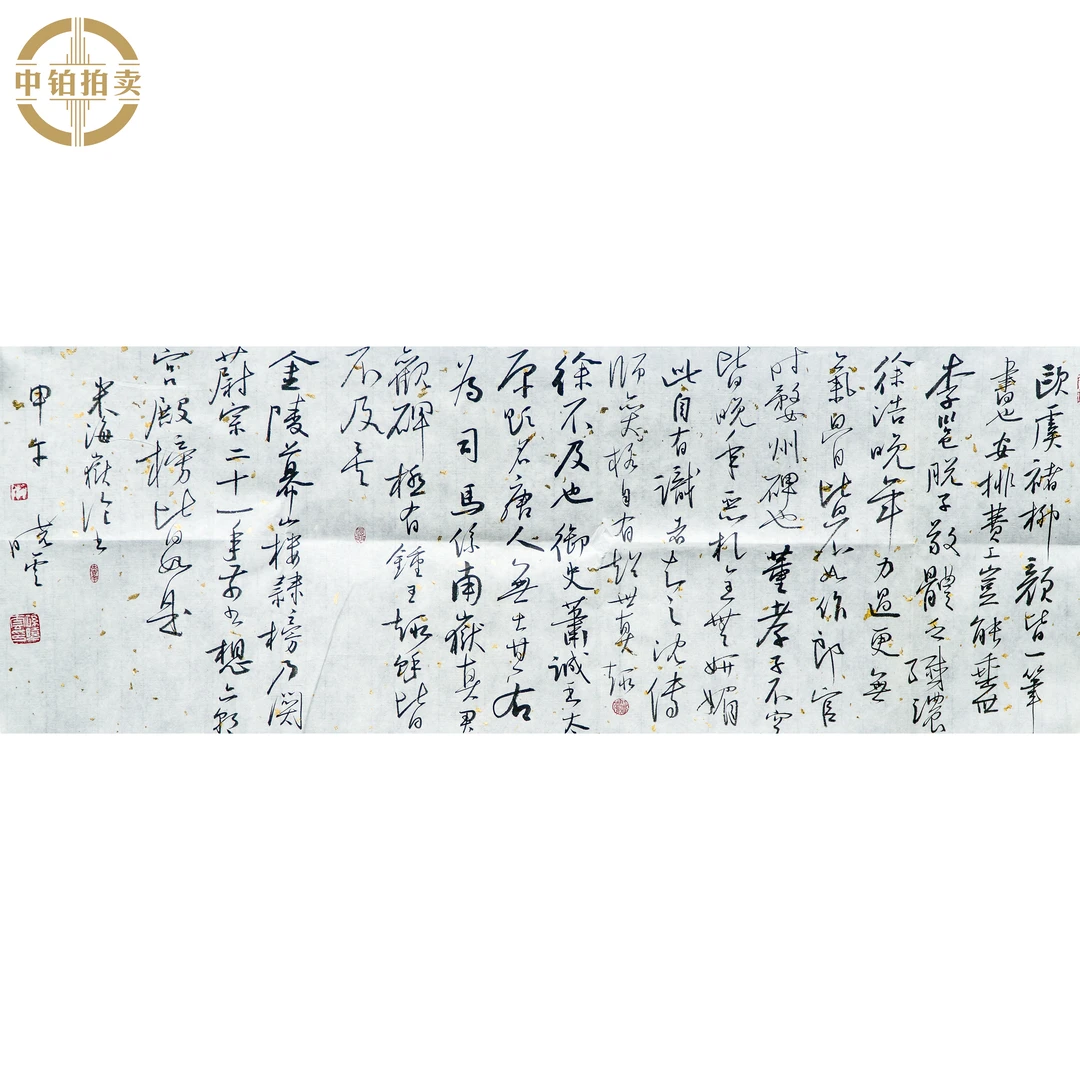 中铂拍卖
欧虞褚柳颜皆一笔
書也安排費工豈能垂世
李邕脱子敬體乏纖濃
徐浩晚年力過更無
氣骨皆不如作郎官
時婺州碑也董孝子不空
皆晚年惡札全無妍媚
此自有識者知之沈傳
師變格自有超世真趣
徐不及也御史蕭誠書太
原題名唐人無出其右
為司馬係南嶽真君
觀碑極有鍾王趣餘皆
不及矣
金陵幕山樓隷榜乃関
蔚宗二十一年前書想六朝
宫殿榜皆如是
米海嶽論書
甲午 曉雲